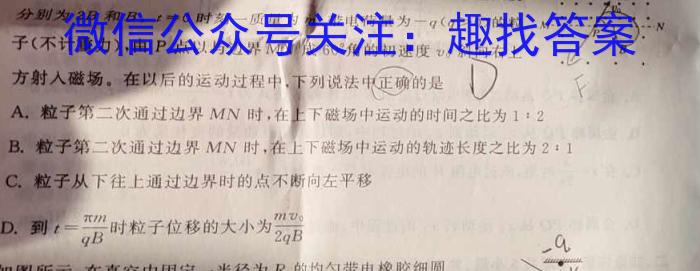 分别为2B和B,t=0时刻一质量为m、带电荷量为-q(
子(不计重力)由P
微信公众号关注：趣找答案
方射入磁场。在以后的运动过程中,下列说法中正确的是
A. 粒子第二次通过边界 MN 时,在上下磁场中运动的时间之比为 1∶2
B. 粒子第二次通过边界 MN 时,在上下磁场中运动的轨迹长度之比为 2∶1
C. 粒子从下往上通过边界时的点不断向左平移
D. 到 t=πm/qB 时粒子位移的大小为 mv₀/2qB
D
-q
如图所示,在真空中固定一半径为 R 的均匀带电橡胶细圆